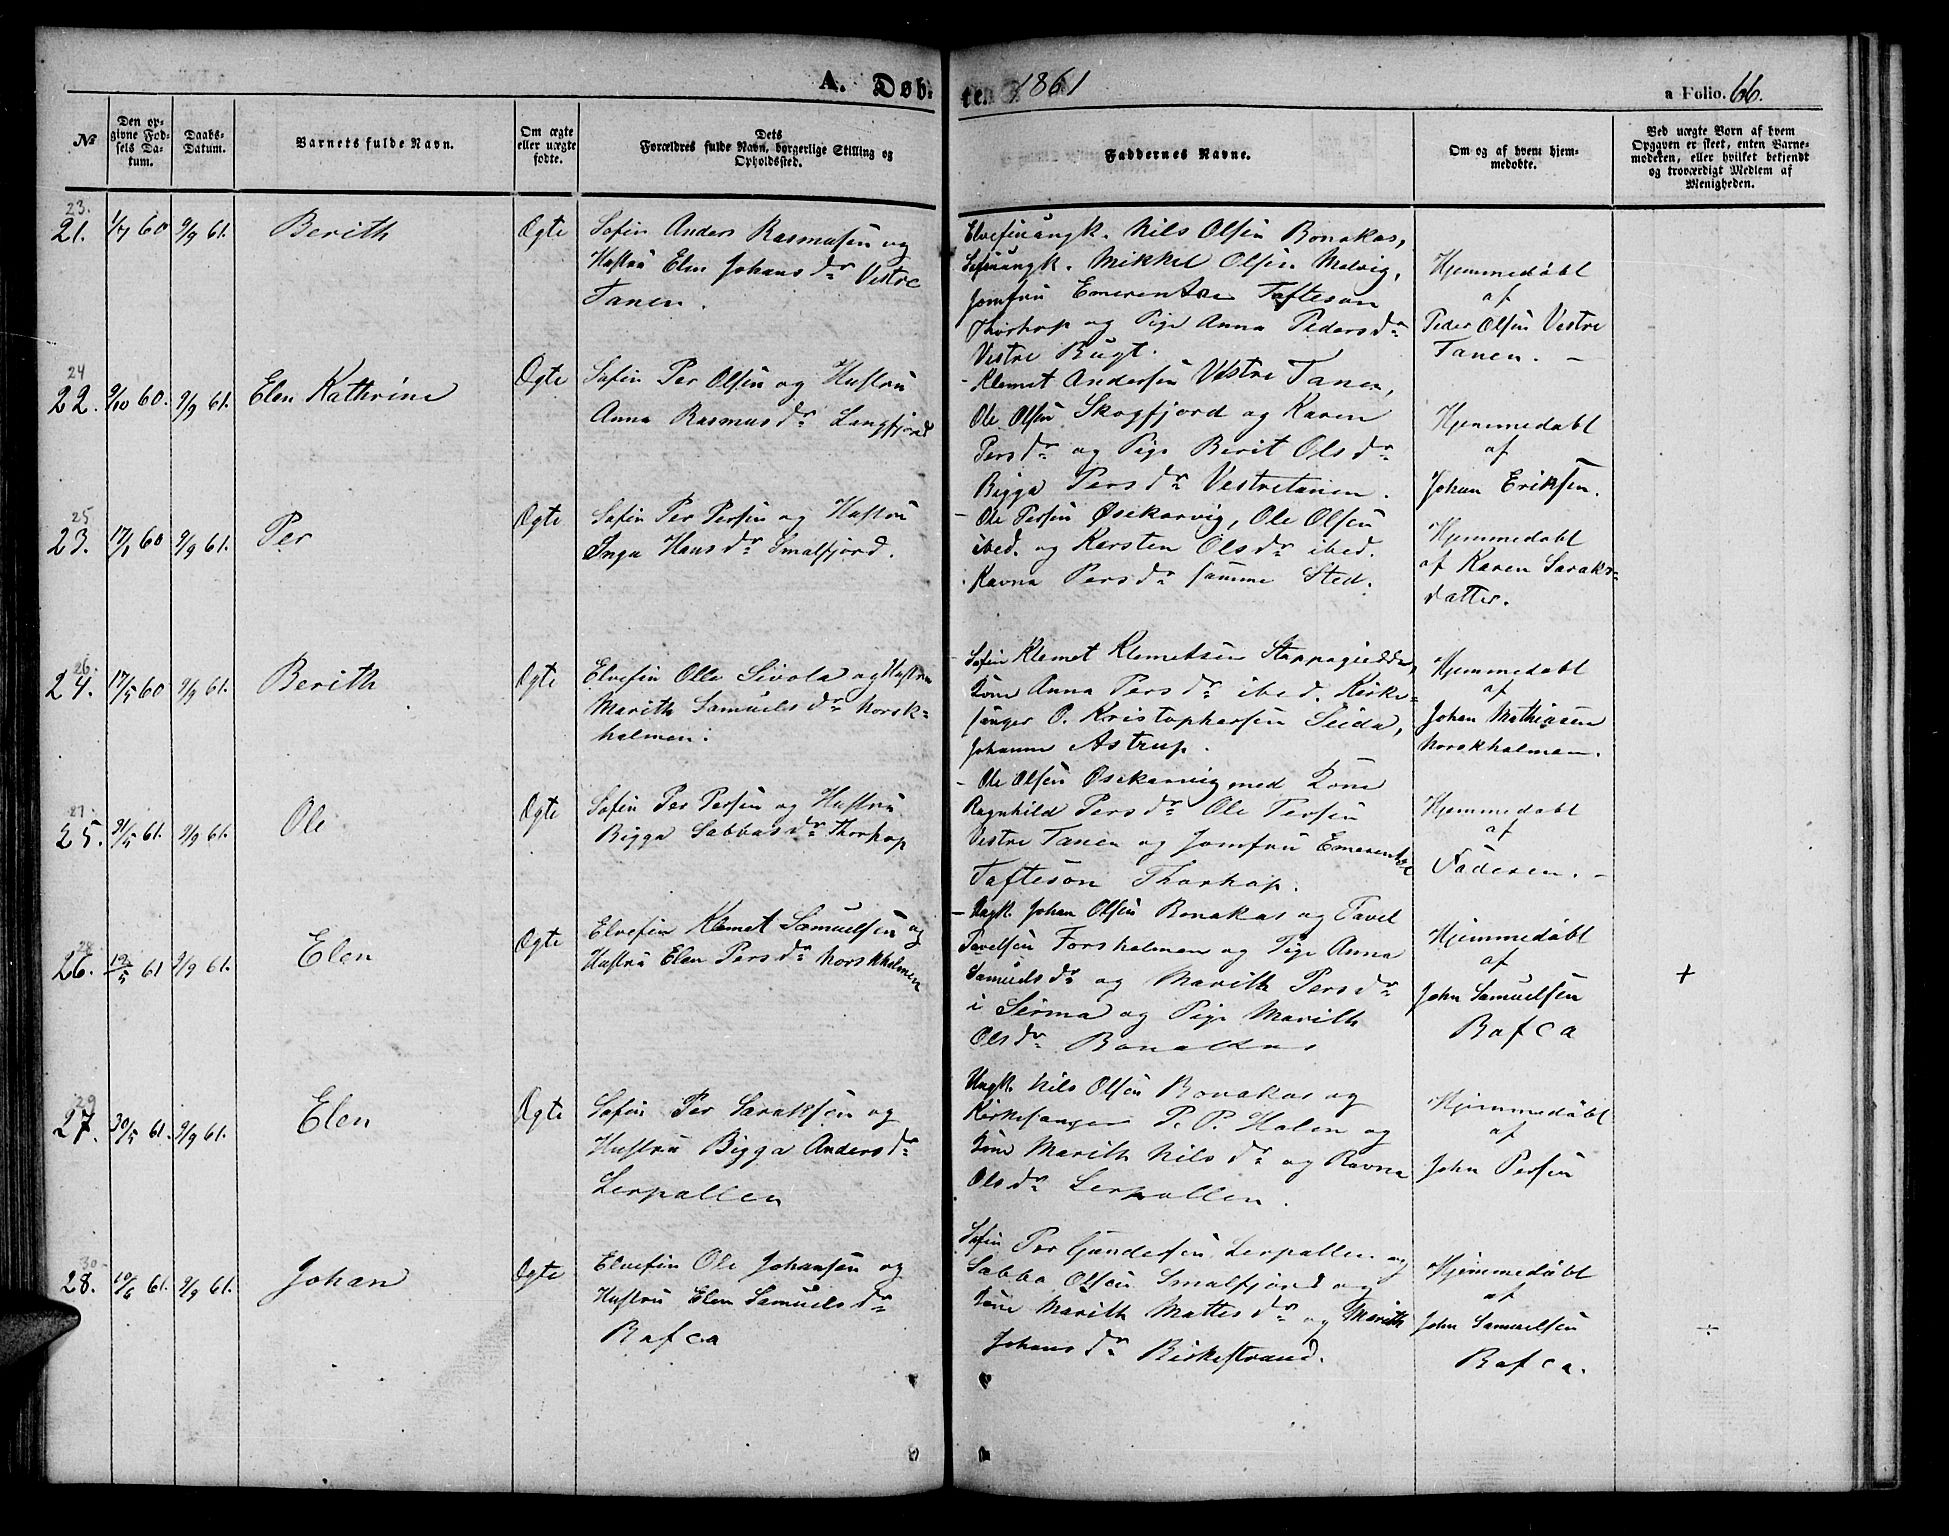 A. Døb-
ten 1861
a Folio. 66.
№
Den op-
givne Fød-
sels Da-
tum.
Daabs-
Datum.
Barnets fulde Navn.
Om ægte
eller uægte
fødte.
Dets
Forældres fulde Navn, borgerlige Stilling og
Opholdssted.
Faddernes Navne.
Om og af hvem hjem-
medøbte.
Ved uægte Børn af hvem
Opgaven er skeet, enten Barne-
moderen, eller hvilket bekjendt
og troværdigt Medlem af
Menigheden.
23.
21. 1/7 60 9/9 61. Berith Ægte
Søfin Anders Rasmusen og
Hustru Elen Johans dr Vestre
Tanen.
Elvefinungk. Nils Olsen Bonakas,
Søfinungk. Mikkel Olsen Molvig,
Jomfru Emerentze Tafteson
Thorhop og Pige Anna Peders dr
Vestre Bugt.
Hjemmedøbt
af
Peder Olsen Vestre
Tanen. -
24
22. 9/10 60. 9/9 61. Elen Kathrine Ægte
Søfin Per Olsen og Hustru
Anna Rasmus dr Langfjord
- Klemet Andersen Vestre Tanen,
Ole Olsen Skogfjord og Karen
Pers dr og Pige Berit Ols dr
Bigga Pers dr Vestretanen.
Hjemmedøbt
af
Johan Eriksen.
25
23. 17/1 60 9/9 61. Per Ægte
Søfin Per Persen og Hustru
Inga Hans dr Smalfjord.
- Ole Persen Øsekarvig, Ole Olsen
ibed. og Karsten Ols dr ibed.
Ravna Pers dr samme Sted.
Hjemmedøbt
af Karen Saraks-
datter.
26.
24. 17/5 60 9/9 61. Berith Ægte
Elvefin Olle Sivola og Hustru
Marith Samuels dr Norsk-
holmen.
- Søfin Klemet Klemetsen Stappogiedde,
Kone Anna Pers dr ibed. Kirke-
sanger O. Kristophersen Seida,
Johanne Astrup.
Hjemmedøbt
af
Johan Mathiasen
Norskholmen.
27.
25. 31/5 61. 9/9 61. Ole Ægte
Søfin Per Persen og Hustru
Bigga Sabbas dr Thorhop
- Ole Olsen Øsekarvig med Kone
Ragnhild Pers dr Ole Persen
Vestre Tanen og Jomfru Emerentze
Tafteson Thorhop.
Hjemmedøbt
af
Faderen. -
28.
26. 12/5 61 9/9 61. Elen Ægte
Elvefin Klemet Samuelsen og
Hustru Elen Pers dr Norskholmen
- Ungk. Johan Olsen Bonakas og Pavel
Pavelsen Forsholmen og Pige Anna
Samuels dr og Marith Pers dr
i Sirma og Pige Marith
Ols dr Bonakas
Hjemmedøbt
af
John Samuelsen
Bafca
+
29
27. 30/5 61. 9/9 61. Elen Ægte
Søfin Per Saraksen og
Hustru Bigga Anders dr
Lerpallen
Ungk. Nils Olsen Bonakas og
Kirkesanger P. P. Holen og
Kone Marith Nils dr og Ravna
Ols dr Lerpollen.
Hjemmedøbt
af
John Persen
30
28. 10/6 61. 9/9 61. Johan Ægte
Elvefin Ole Johansen og
Hustru Elen Samuels dr
Bafca
Søfin Per Gundersen Lerpallen og
Sabba Olsen Smalfjord og
Kone Marith Mattes dr og Marith
Johans dr Birkestrand.
Hjemmedøbt
af
John Samuelsen
Bafca.
÷